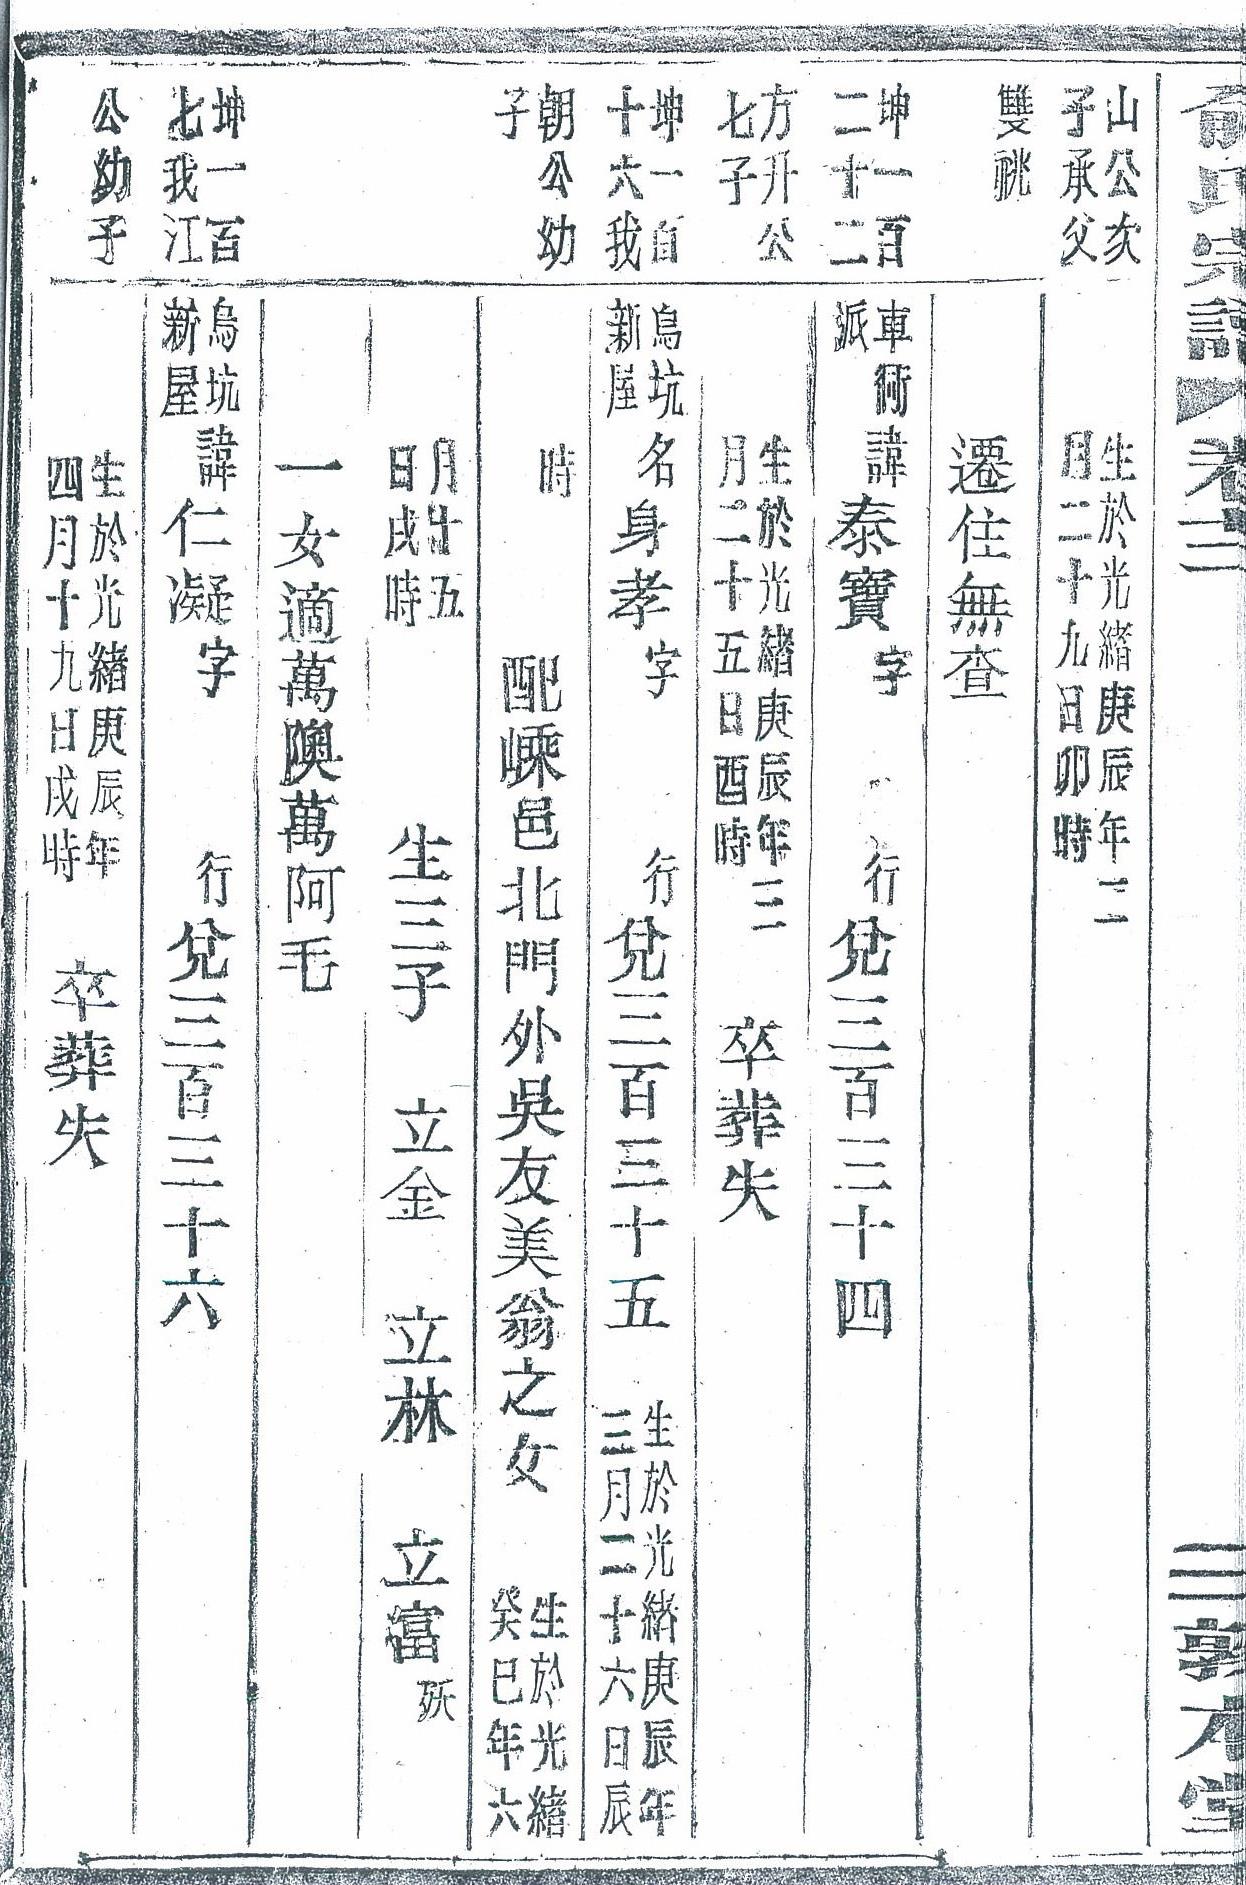 俞氏宗譜 卷三 三 敦本堂
山公次
子承父
雙祧
生於光緒庚辰年二
月二十九日卯時
遷住無查
坤一百
二十二
方升公
七子
車衕
派
諱泰寶 字 行兌三百三十四
生於光緒庚辰年三
月二十五日酉時
卒葬失
坤一百
十六我
朝公幼
子
烏坑
新屋
名身孝 字 行兌三百三十五
生於光緒庚辰年
三月二十六日辰
時
配嵊邑北門外吳友美翁之女
生於光緒
癸巳年六
月廿五
日戌時
生三子 立金 立林 立富 殀
一女適萬隩萬阿毛
坤一百
七我江
公幼子
烏坑
新屋
諱仁凝 字 行兌三百三十六
生於光緒庚辰年
四月十九日戌時
卒葬失